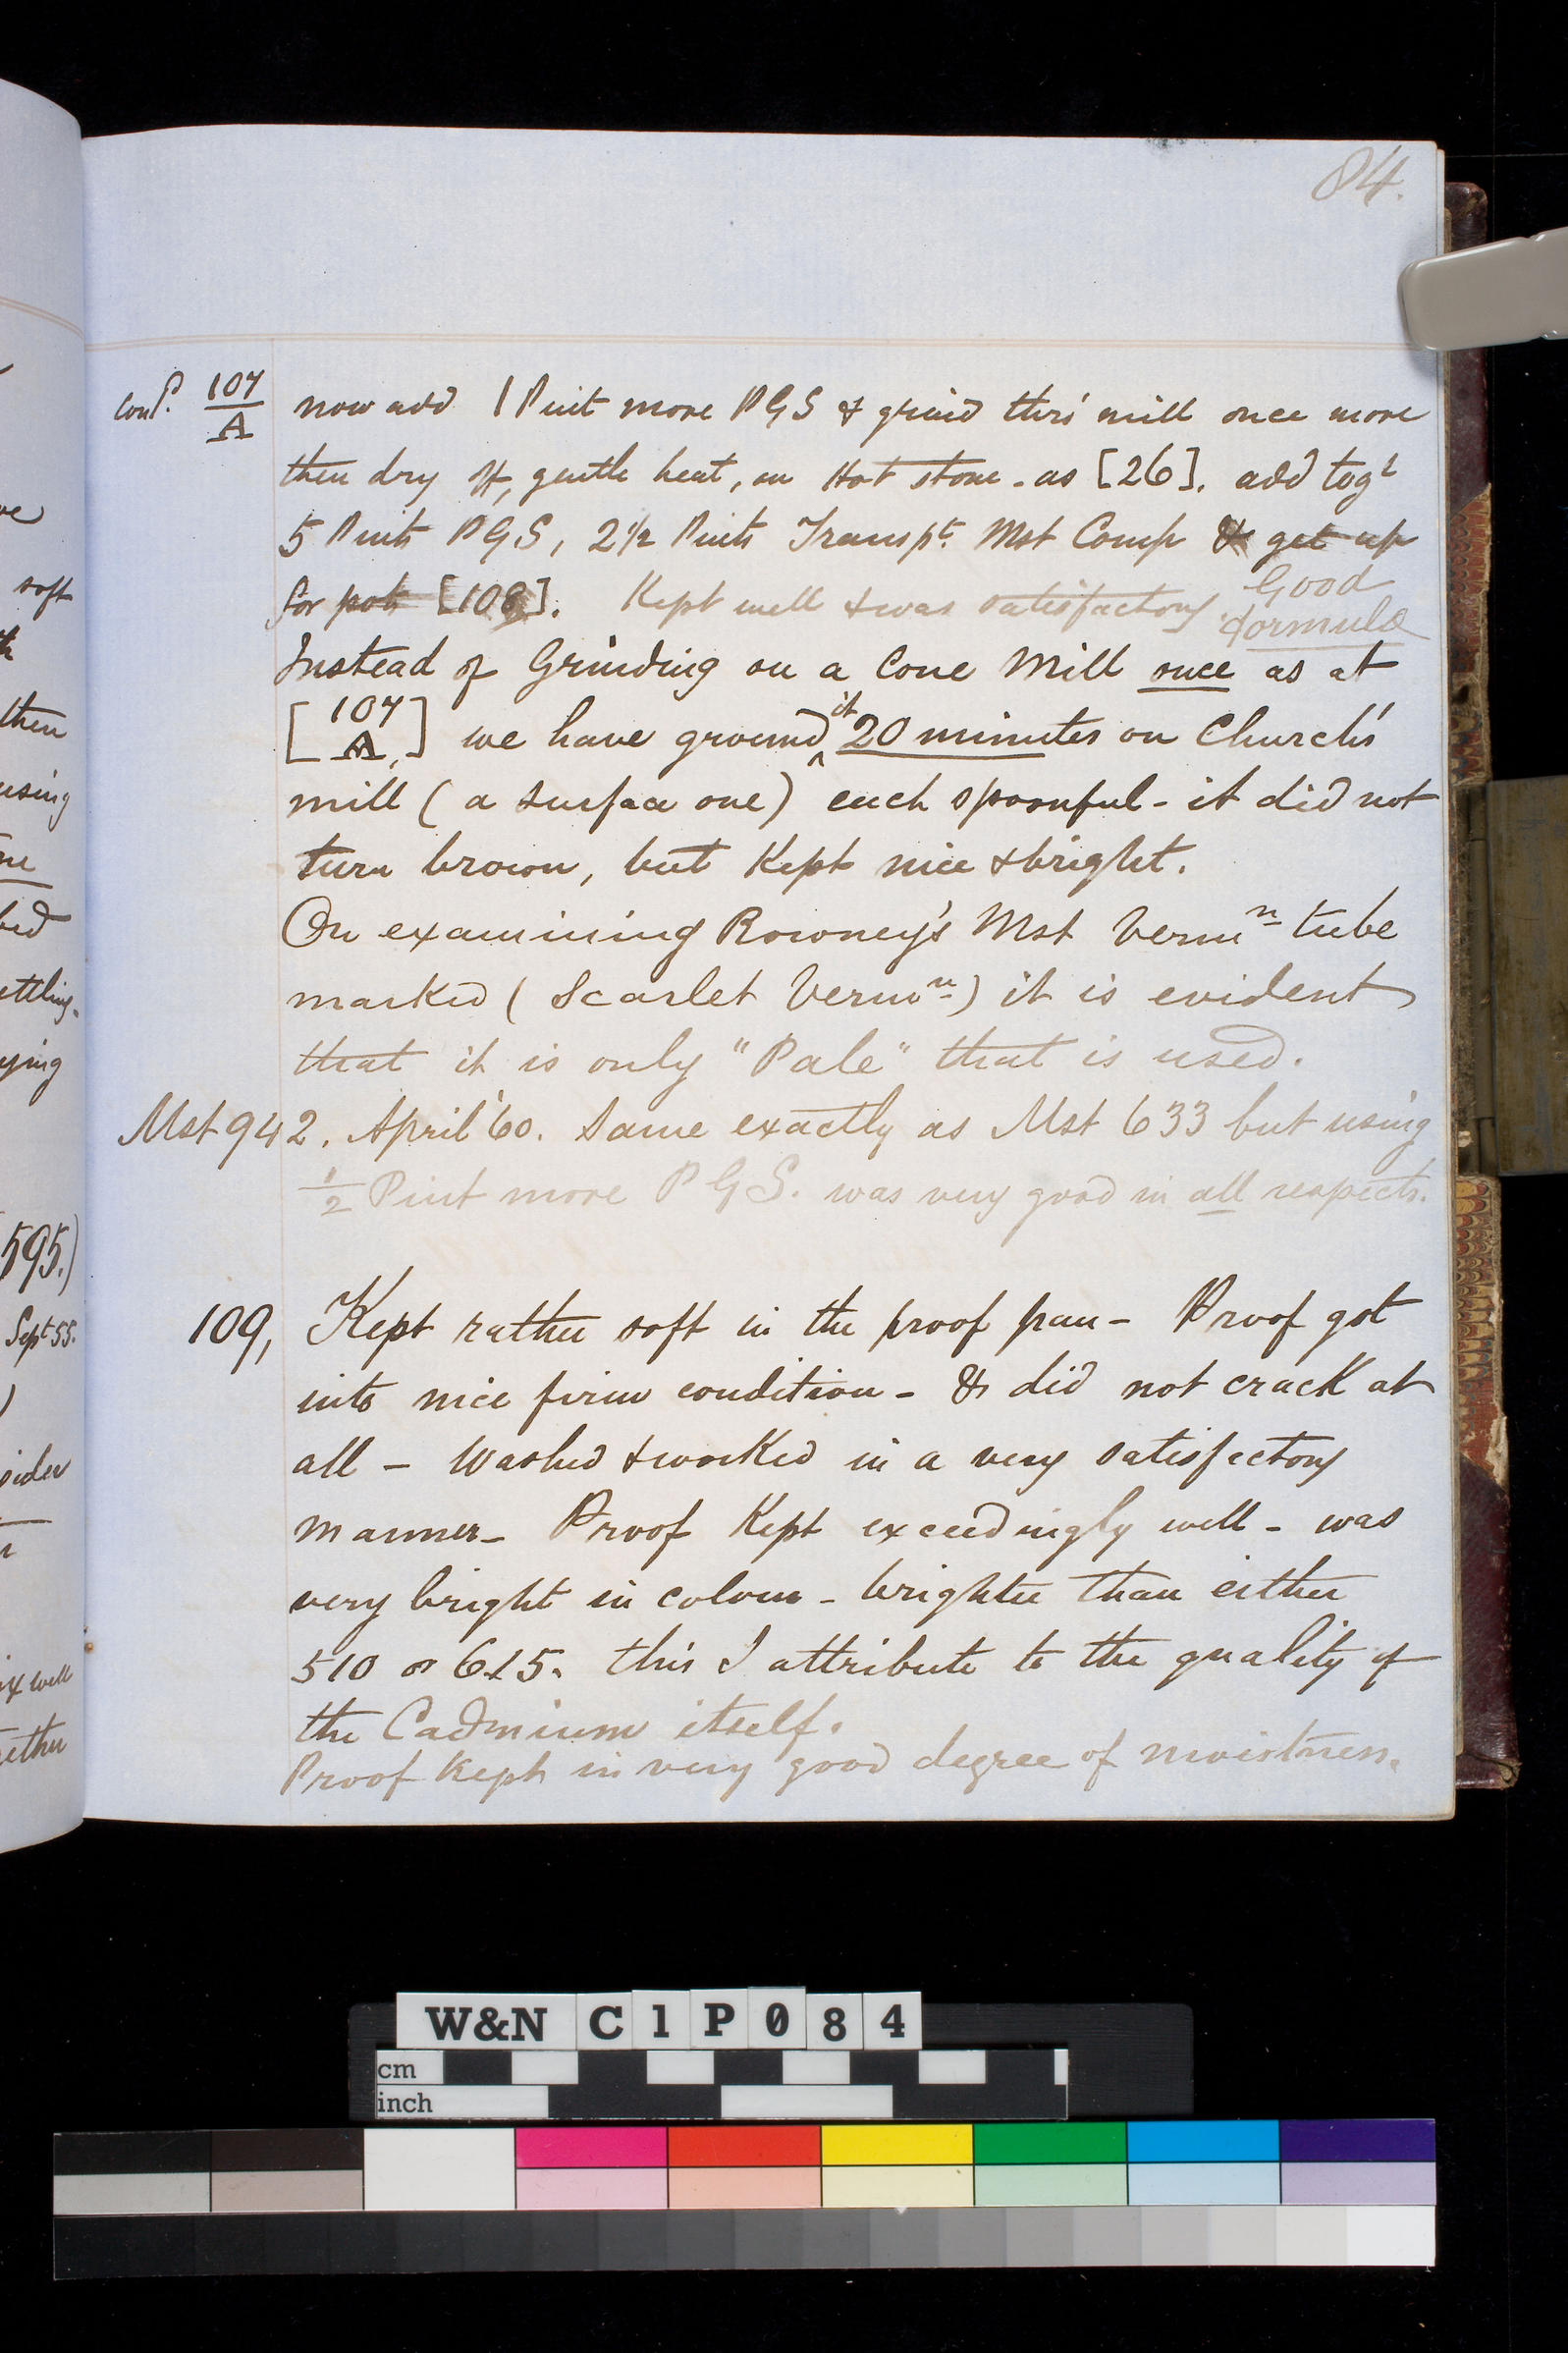 84.
Cont? 107/A now add 1 Pint more PGS & grind thro' mill once more
then dry off, gentle heat, on Hot stone - as [26]. add togr
5 Pints PGS, 2 1/2 Pints Transpt. Mst Comp & get up
for pots [108]. Kept well & was satisfactory Good
formula
Instead of Grinding on a Cone Mill once as at
[107/A,] we have ground it 20 minutes on Church's
mill (a surface one) each spoonful - it did not
turn brown, but Kept nice & bright.
On examining Rowney's Mst Vermn tube
marked (Scarlet Vermn) it is evident
that it is only "Pale" that is used.
Mst 942. April '60. Same exactly as Mst 633 but using
1/2 Pint more PGS. was very good in all respects.
109, Kept rather soft in the proof pan - Proof got
into nice firm condition - & did not crack at
all - Washed & worked in a very satisfactory
manner - Proof Kept exceedingly well - was
very bright in colour - brighter than either
510 or 615. this I attribute to the quality of
the Cadmium itself.
Proof Kept in very good degree of moistness.
soft
then
using
595.)
Sept 55.
well
W&N C1P084
cm
inch